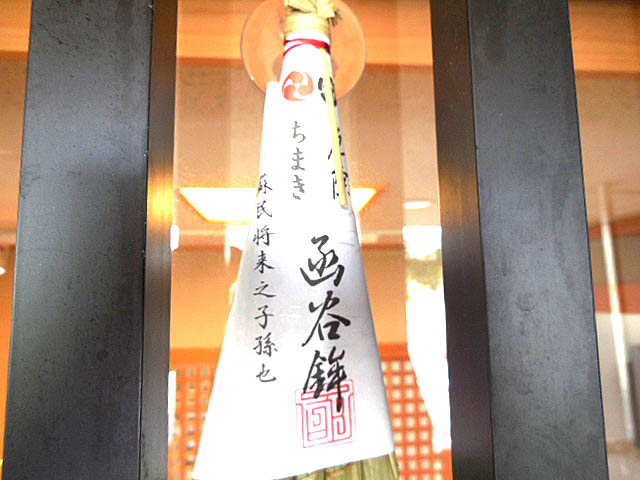 函谷鉾
ちまき
蘇民将来之子孫也